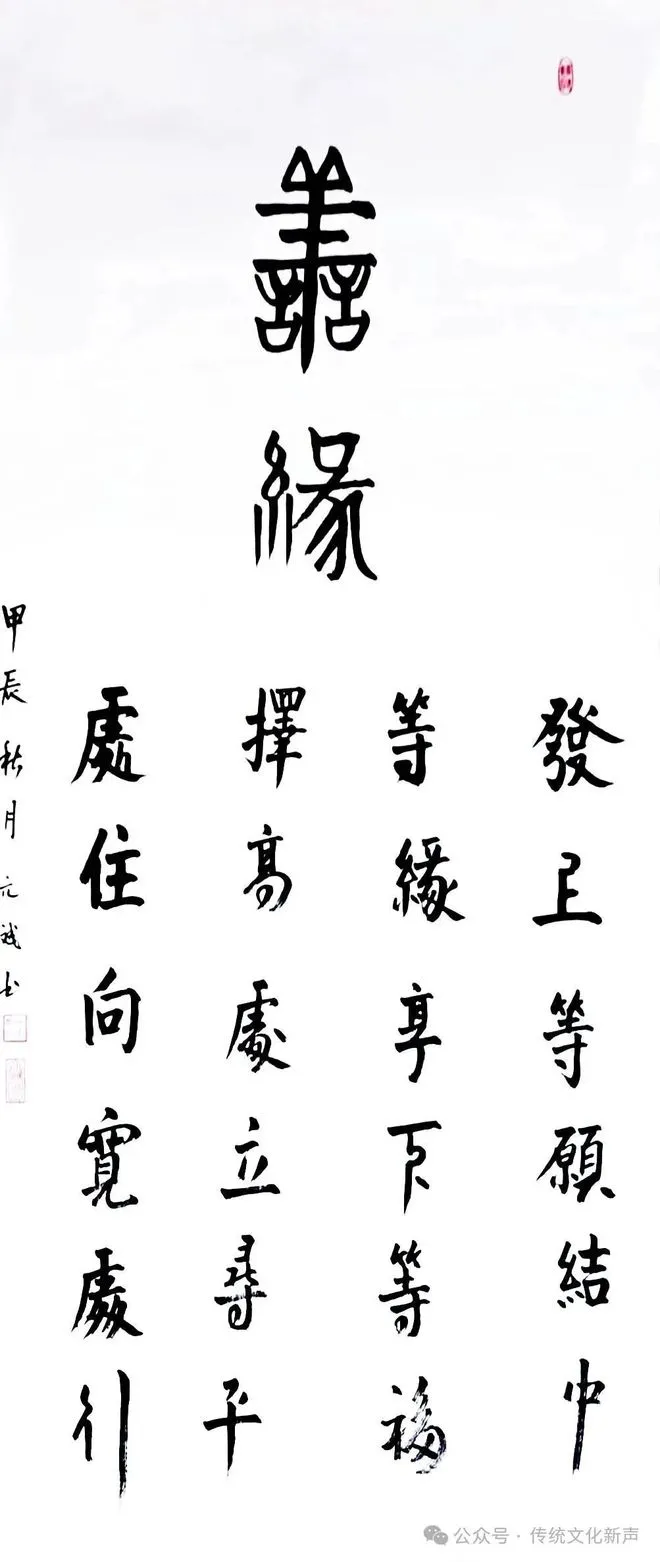 善
緣
發上等願結中
等緣享下等福
擇高處立尋平
處住向寬處行
甲辰秋月元誠書
公众号 · 传统文化新声